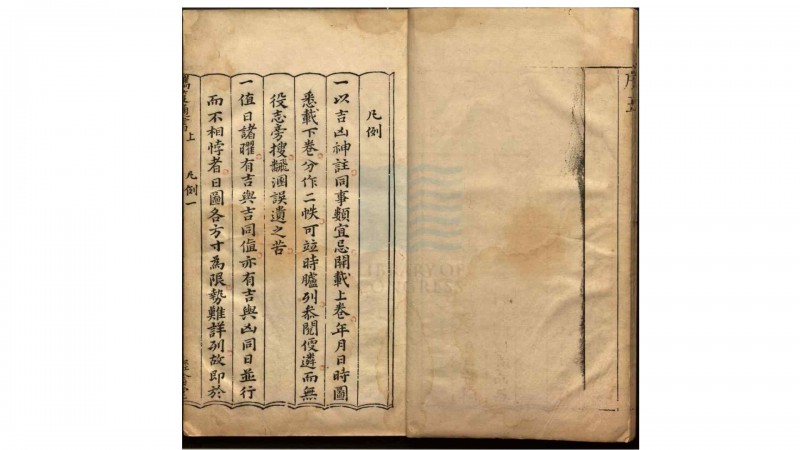 序 五
凡例
一以吉凶神註同事類宜忌開載上卷年月日時圖
悉載下卷分作二帙可竝時臚列叅閱便遴而無
役志旁搜飜溷誤遺之苦
一值日諸曜有吉與吉同值亦有吉與凶同日並行
而不相悖者日圖各方寸為限勢難詳列故即於
通書 上 凡例 一
LIBRARY OF CONGRESS